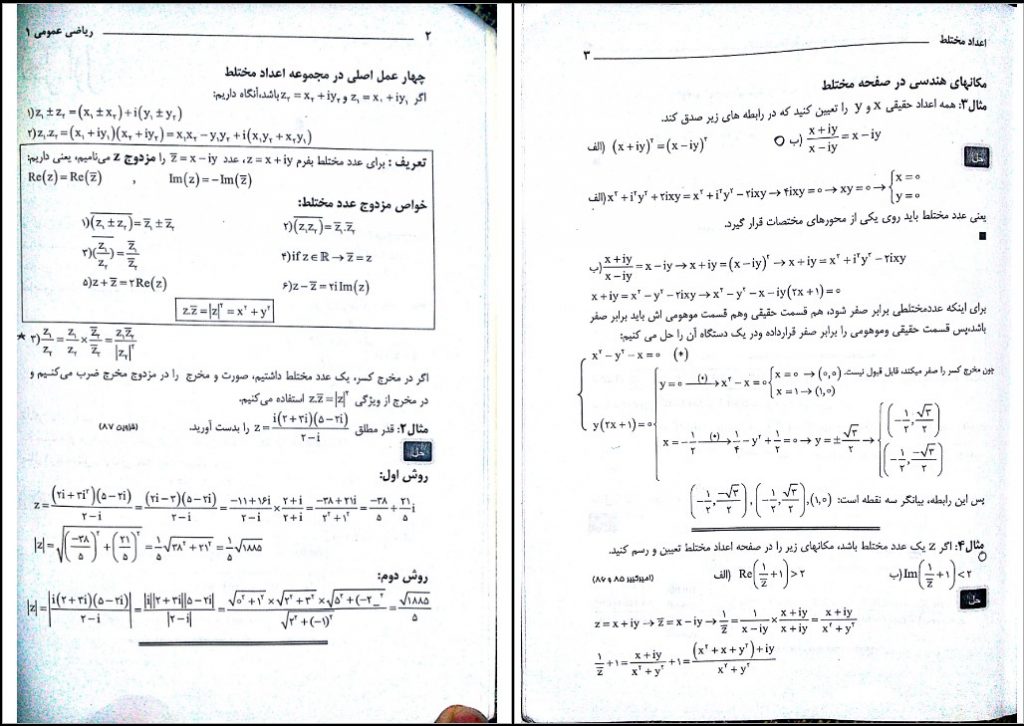 ۲ ریاضی عمومی ۱
چهار عمل اصلی در مجموعه اعداد مختلط
اگر z₁ = x₁ + iy₁ و z₂ = x₂ + iy₂ باشد،آنگاه داریم:
۱) z₁ ± z₂ = (x₁ ± x₂) + i(y₁ ± y₂)
۲) z₁.z₂ = (x₁ + iy₁)(x₂ + iy₂) = x₁x₂ − y₁y₂ + i(x₁y₂ + x₂y₁)
تعریف : برای عدد مختلط بفرم z = x + iy، عدد z̅ = x − iy را مزدوج z می‌نامیم، یعنی داریم:
Re(z) = Re(z̅) , Im(z) = −Im(z̅)
خواص مزدوج عدد مختلط:
۱) \overline{(z₁ ± z₂)} = z̅₁ ± z̅₂ ۲) \overline{(z₁z₂)} = z̅₁.z̅₂
۳) \overline{(z₁/z₂)} = z̅₁/z̅₂ ۴) if z ∈ ℝ → z̅ = z
۵) z + z̅ = ۲Re(z) ۶) z − z̅ = ۲i Im(z)
z.z̅ = |z|² = x² + y²
★ ۳) z₁/z₂ = z₁/z₂ × z̅₂/z̅₂ = z₁z̅₂/|z₂|²
اگر در مخرج کسر، یک عدد مختلط داشتیم، صورت و مخرج را در مزدوج مخرج ضرب می‌کنیم و
در مخرج از ویژگی z.z̅ = |z|² استفاده می‌کنیم.
مثال۲: قدر مطلق z = i(۲+۳i)(۵−۲i)/(۲−i) را بدست آورید. (قزوین ۸۷)
حل
روش اول:
z = (۲i+۳i²)(۵−۲i)/(۲−i) = (۲i−۳)(۵−۲i)/(۲−i) = (−۱۱+۱۶i)/(۲−i) × (۲+i)/(۲+i) = (−۳۸+۲۱i)/(۲²+۱²) = −۳۸/۵ + ۲۱/۵ i
|z| = √((−۳۸/۵)² + (۲۱/۵)²) = ۱/۵ √(۳۸²+۲۱²) = ۱/۵ √۱۸۸۵
روش دوم:
|z| = |i(۲+۳i)(۵−۲i)/(۲−i)| = |i||۲+۳i||۵−۲i|/|۲−i| = √(۰²+۱²) × √(۲²+۳²) × √(۵²+(−۲)²)/√(۲²+(−۱)²) = √۱۸۸۵/۵
اعداد مختلط ۳
مکانهای هندسی در صفحه مختلط
مثال۳: همه اعداد حقیقی x و y را تعیین کنید که در رابطه های زیر صدق کند.
الف) (x+iy)² = (x−iy)² ب) (x+iy)/(x−iy) = x−iy
حل
الف) x² + i²y² + ۲ixy = x² + i²y² − ۲ixy → ۴ixy = ۰ → xy = ۰ → { x = ۰ , y = ۰
یعنی عدد مختلط باید روی یکی از محورهای مختصات قرار گیرد.
ب) (x+iy)/(x−iy) = x−iy → x+iy = (x−iy)² → x+iy = x² + i²y² − ۲ixy
x+iy = x² − y² − ۲ixy → x² − y² − x − iy(۲x+۱) = ۰
برای اینکه عددمختلطی برابر صفر شود، هم قسمت حقیقی وهم قسمت موهومی اش باید برابر صفر
باشد،پس قسمت حقیقی وموهومی را برابر صفر قرارداده ودر یک دستگاه آن را حل می کنیم:
x² − y² − x = ۰ (*)
y(۲x+۱) = ۰
y = ۰ —(*)→ x² − x = ۰ { x = ۰ → (۰,۰) چون مخرج کسر را صفر میکند، قابل قبول نیست.
x = ۱ → (۱,۰)
x = −۱/۲ —(*)→ ۱/۴ − y² + ۱/۲ = ۰ → y = ±√۳/۲ → { (−۱/۲, √۳/۲)
(−۱/۲, −√۳/۲)
پس این رابطه، بیانگر سه نقطه است: (۱,۰), (−۱/۲, √۳/۲), (−۱/۲, −√۳/۲)
مثال۴: اگر z یک عدد مختلط باشد، مکانهای زیر را در صفحه اعداد مختلط تعیین و رسم کنید.
الف) Re(۱/z̅ + ۱) > ۲ ب) Im(۱/z̅ + ۱) < ۲ (امیرکبیر ۸۵ و ۸۶)
حل
z = x+iy → z̅ = x−iy → ۱/z̅ = ۱/(x−iy) × (x+iy)/(x+iy) = (x+iy)/(x²+y²)
۱/z̅ + ۱ = (x+iy)/(x²+y²) + ۱ = ((x²+x+y²)+iy)/(x²+y²)